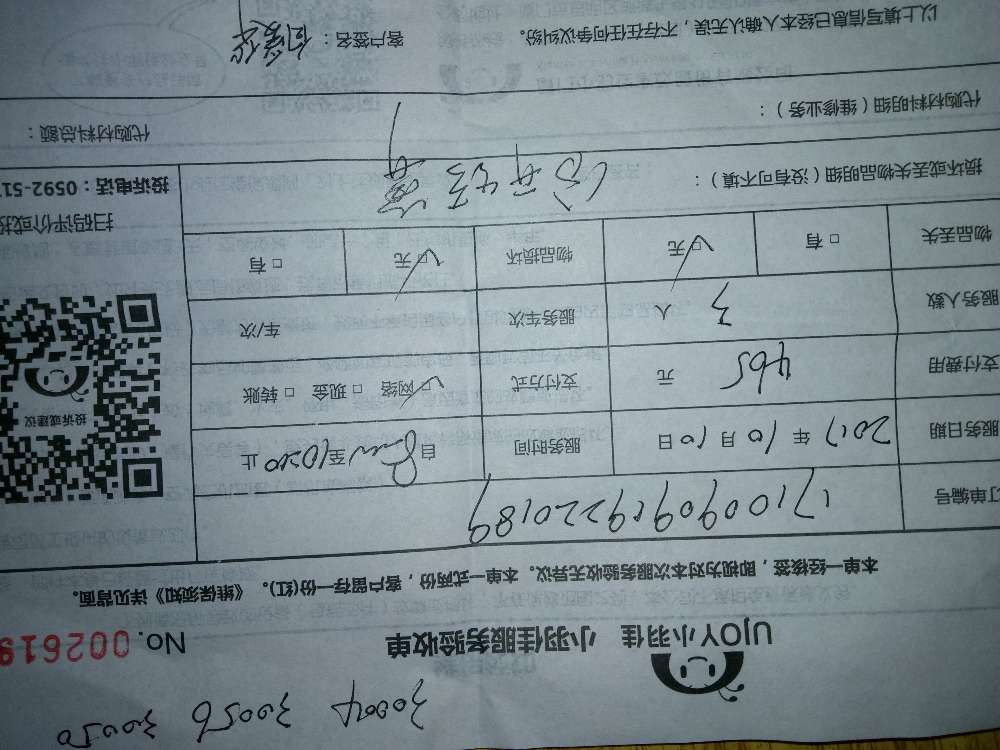 30004 30056 30050
UJOY小羽佳 小羽佳服务验收单 No. 002619
本单一经核签，即视为对本次服务验收无异议。本单一式两份，客户留存一份(红)。《维保须知》详见背面。
订单编号 1710090919220189
服务日期 2017 年 10 月 10 日 服务时间 自 至 1020 止
支付费用 465 元 支付方式 ☑ 网络 □ 现金 □ 转账
服务人数 3 人 服务车次 车/次
物品丢失 □ 有 ☑ 无 物品损坏 ☑ 无 □ 有
投诉或建议
扫码评价或投
投诉电话：0592-51
损坏或丢失物品明细（没有可不填）：
代购材料明细（维修业务）： 代购材料总额：
以上填写信息已经本人确认无误，不存在任何争议纠纷。 客户签名：